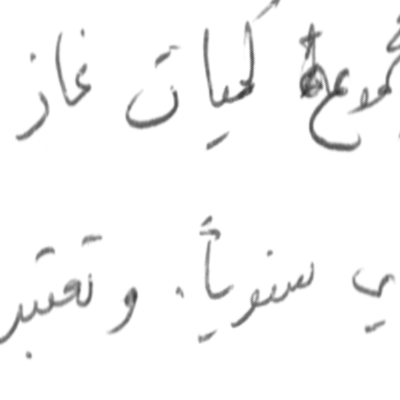 مجموع كميات غاز
ي سنوياً. وتعتبر